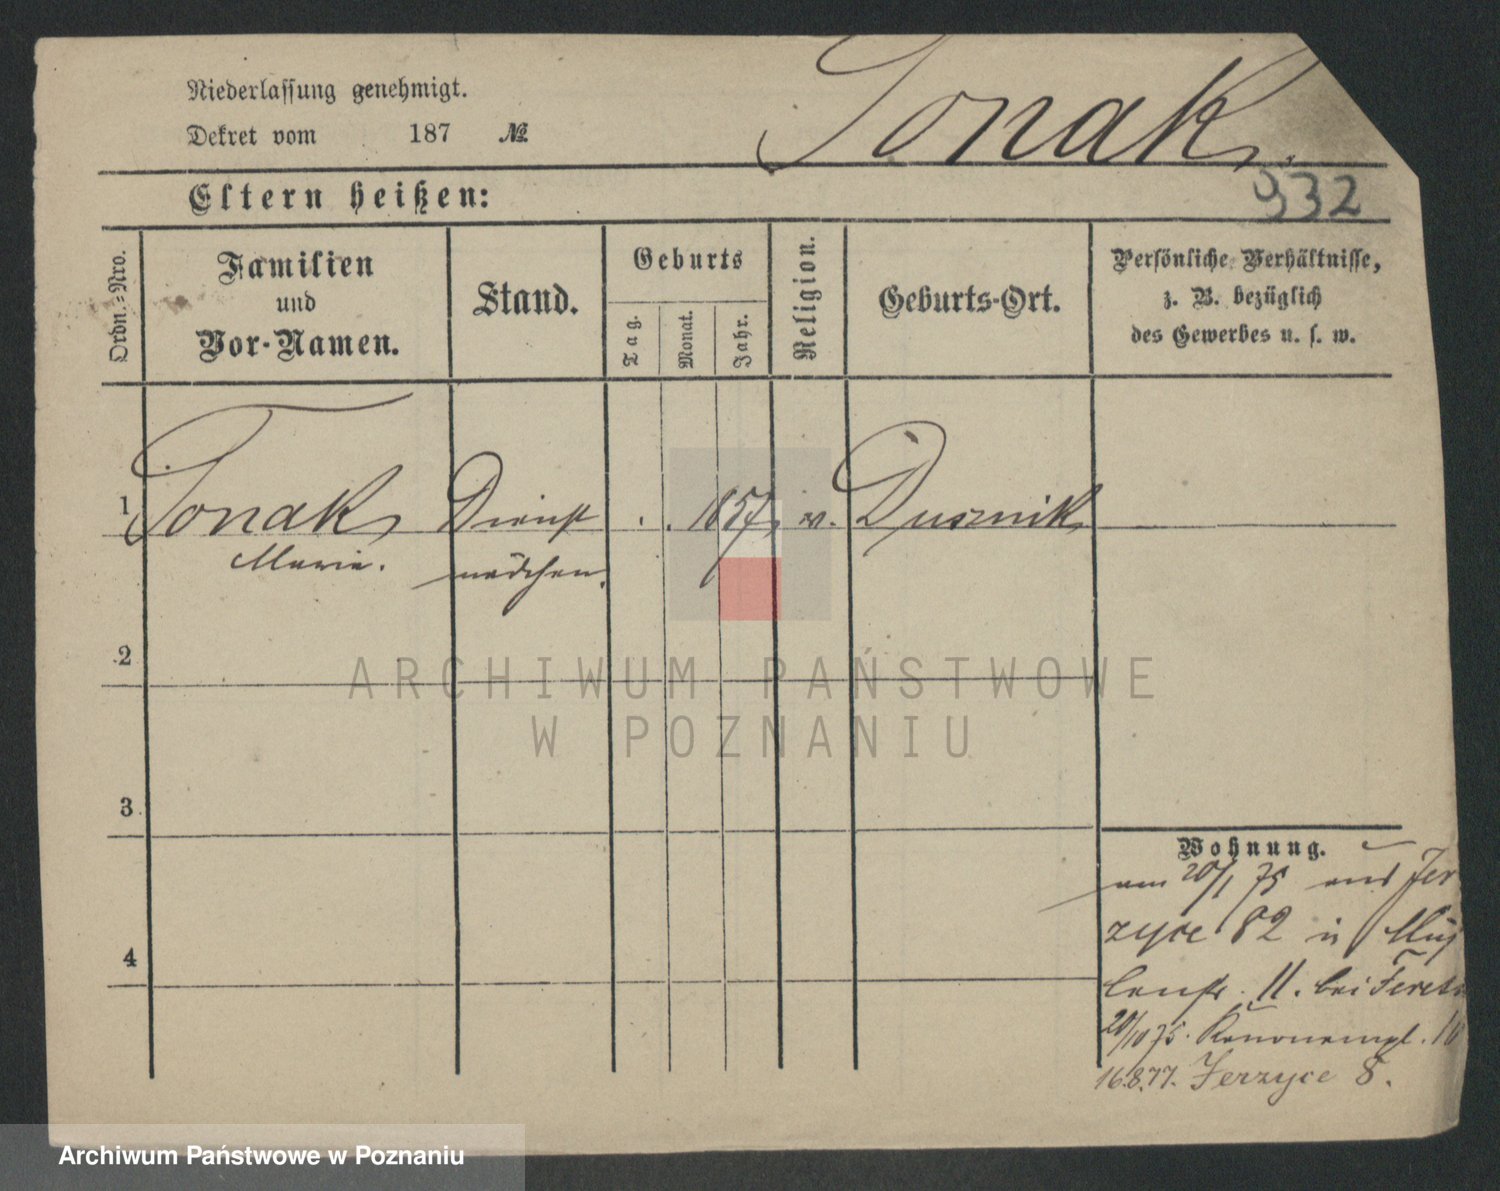 Niederlassung genehmigt.
Dekret vom 187 №
Tonak.
932
Eltern heißen:
Ordn.=Nro.
Familien
und
Vor-Namen.
Stand.
Geburts
Tag.
Monat.
Jahr.
Religion.
Geburts-Ort.
Persönliche Verhältnisse,
z. B. bezüglich
des Gewerbes u. s. w.
1 Tonak Dienst . . 1857 Dusznik
Marie. mädchen.
2
3
4
Wohnung.
20/1 75 Jer
zyce 82 in
lenstr. 11. bei
20/10 75. Kanonenpl.
16.8.77. Jerzyce 8.
ARCHIWUM PAŃSTWOWE
W POZNANIU
Archiwum Państwowe w Poznaniu